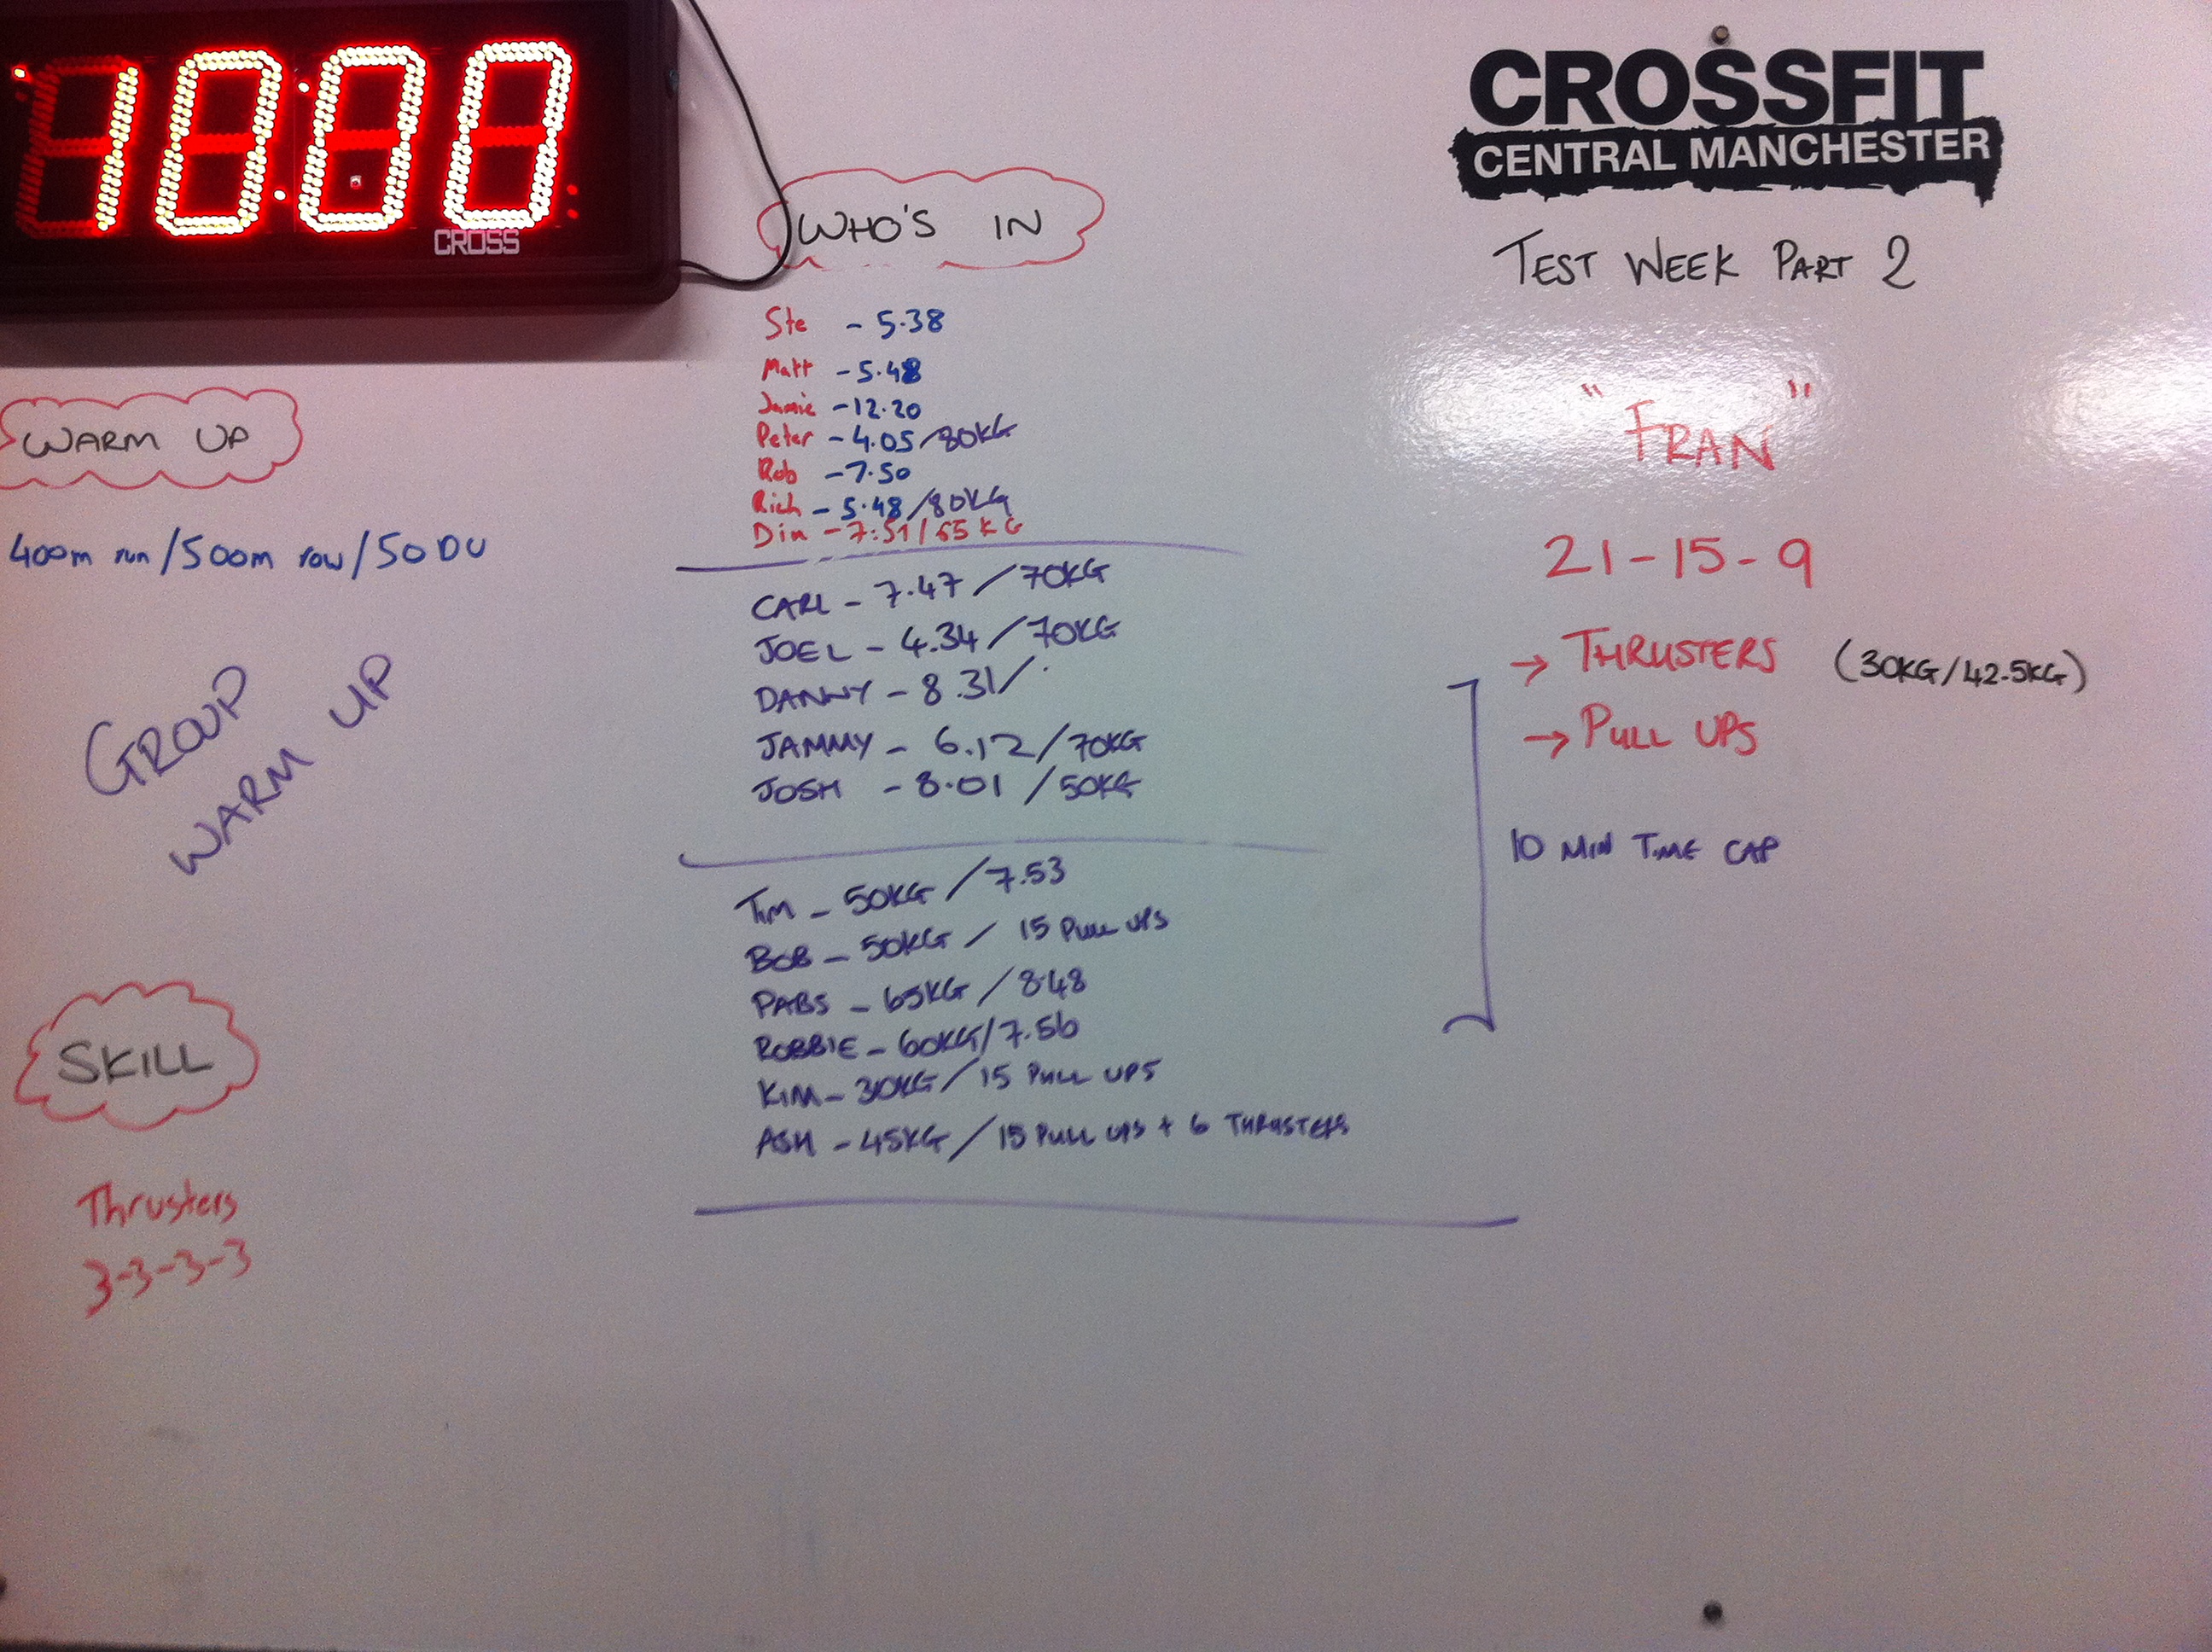 10:00
CROSS
CROSSFIT
CENTRAL MANCHESTER
TEST WEEK PART 2
"FRAN"
21-15-9
→ THRUSTERS (30KG/42.5KG)
→ PULL UPS
10 MIN TIME CAP
WHO'S IN
Ste - 5.38
Matt - 5.48
Jamie - 12.20
Peter - 4.05/80KG
Rob - 7.50
Rich - 5.48/80KG
Dim - 7:51/65KG
CARL - 7.47/70KG
JOEL - 4.34/70KG
DANNY - 8.31/
JAMMY - 6.12/70KG
JOSH - 8.01/50KG
TIM - 50KG/7.53
BOB - 50KG/15 PULL UPS
PABS - 65KG/8.48
ROBBIE - 60KG/7.56
KIM - 30KG/15 PULL UPS
ASH - 45KG/15 PULL UPS + 6 THRUSTERS
WARM UP
400m run/500m row/50 DU
GROUP
WARM UP
SKILL
Thrusters
3-3-3-3